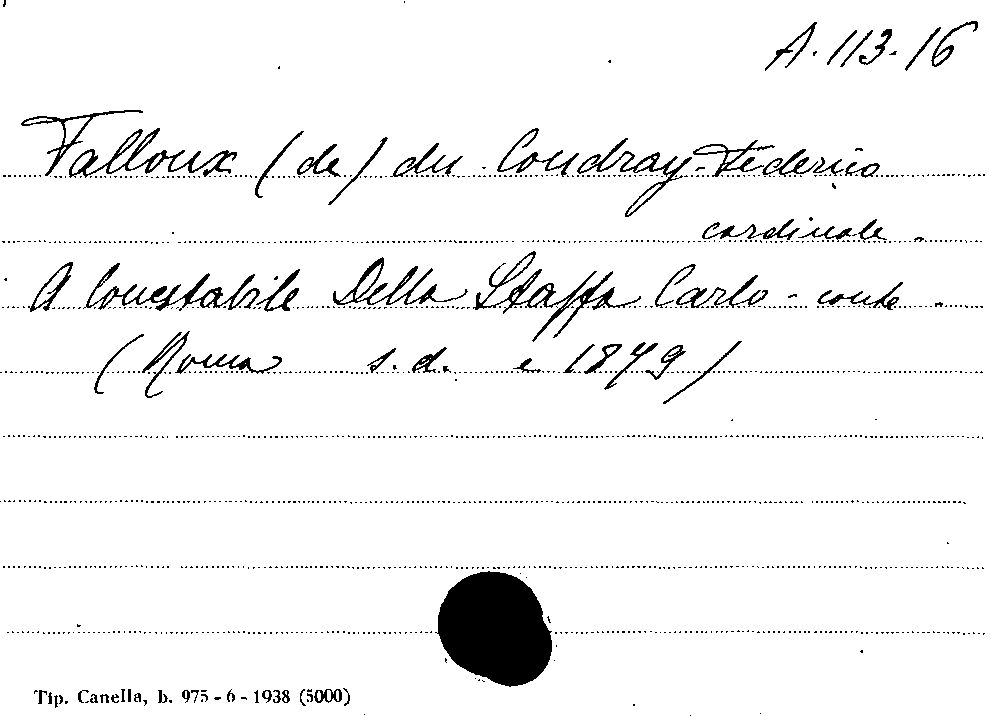 A. 113. 16
Falloux (de) du Coudray - Federico
cardinale.
A Conestabile Della Staffa Carlo - conte.
(Roma s.d. e 1879)
Tip. Canella, b. 975 - 6 - 1938 (5000)